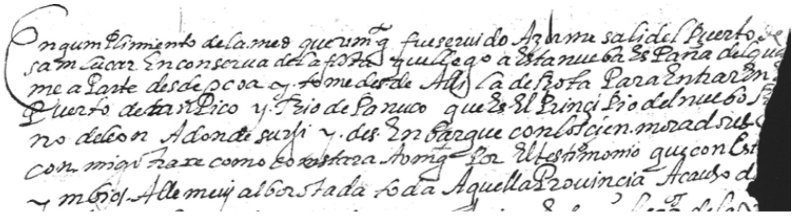 En qumplimiento de la md que vmg fue seruido Azerme sali del Puerto de
san lucar En conserva de la flota que llego a esta nueba es Paña de la qual
me a Parte desde ocoa y tome desde Alli la derrota Para Entrar En
Puerto de tan Pico y Rio de Panuco que es El Prinçi Pio del nuebo R
no de leon A donde surji y des En barque con los çien moradores
con migo traxe como constara A vmg Por El testimonio que con Est
y mbio. Alle muy alborotada toda Aquella Provinçia A causa d